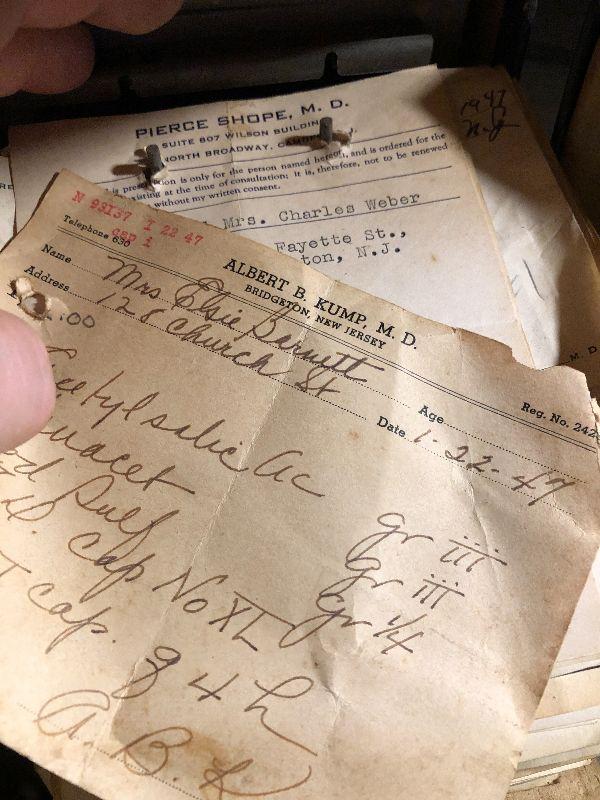 PIERCE SHOPE, M. D.
SUITE 807 WILSON BUILDIN
NORTH BROADWAY,
ion is only for the person named hereon, and is ordered for the
isting at the time of consultation; it is, therefore, not to be renewed
without my written consent.
1947
N.J
Mrs. Charles Weber
Fayette St.,
ton, N.J.
M. D.
N 93137 1 22 47
cap 1
Telephone 630
ALBERT B. KUMP, M. D.
BRIDGETON, NEW JERSEY
Reg. No. 242
Name Mrs Elsie Bennett Age
Address 128 Church St Date 1-22-47
.00
Acetyl salic Ac gr iii
nacet gr iii
d Sulf gr 1/4
D. cap No XL
T cap. q 4 h
A. B. K